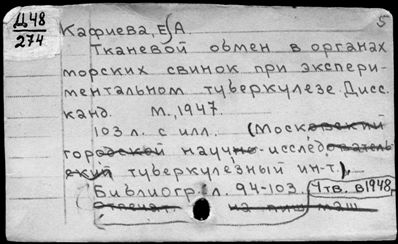 Д48
274
5
Кафиева, Е.А.
Тканевой обмен в органах
морских свинок при экспери-
ментальном туберкулезе. Дисс.
канд. М., 1947.
103 л. с илл. (Московский
городской научно-исследователь-
ский туберкулезный ин-т).
Библиогр.: л. 94-103. Утв. в 1948.
Отпечат. на пиш. маш.